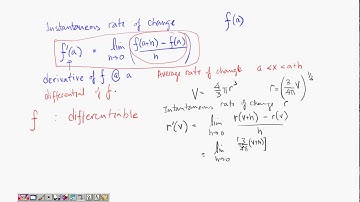 Instantaneous rate of change
f(a)
f'(a) = lim h→0 f(a+h) - f(a) / h
derivative of f @ a
differential of f.
f : differentiable
Average rate of change a < x < a+h
V = 4/3 π r³ r = (3/4π V)^1/3
Instantaneous rate of change r
r'(v) = lim h→0 r(v+h) - r(v) / h
= lim h→0 [3/4π (v+h)]